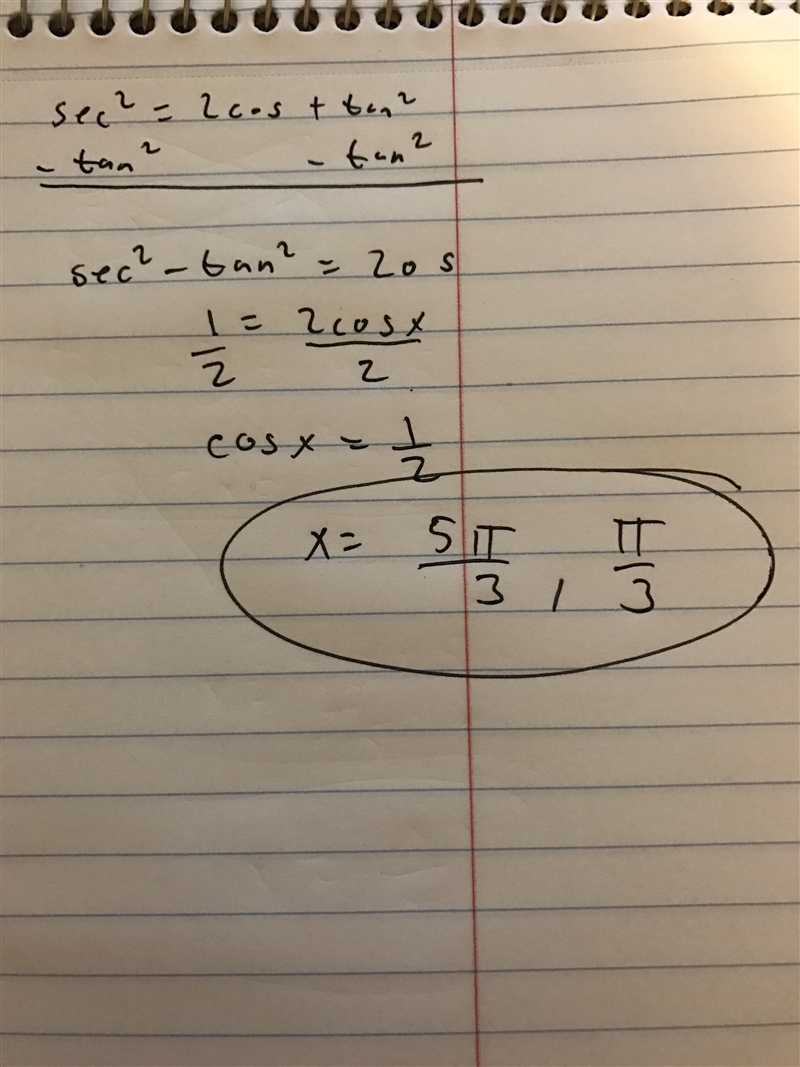 sec² = 2cos + tan²
- tan² - tan²
sec² - tan² = 2os
1/2 = 2cosx/2
cosx = 1/2
x = 5π/3, π/3